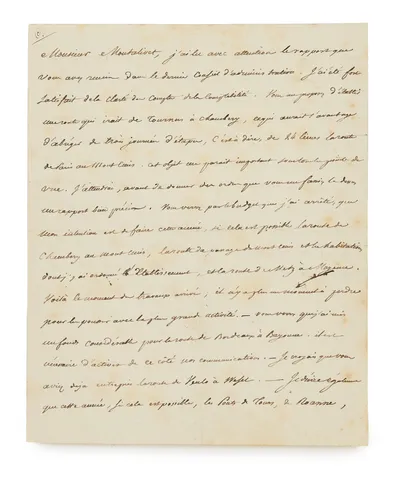 Monsieur Montalivet, j'ai lu avec attention le rapport que
vous avez remis dans le dernier Conseil d'administration. J'ai été fort
satisfait de la clarté du Compte de la Comptabilité. Vous me proposez d'établir
une route qui irait de Tournus à Chambery, ce qui aurait l'avantage
d'abréger de trois journées d'étapes, C'est à dire, de 24 lieues la route
de Paris au Mont Cenis. cet objet me parait important sous tous les points de
vue. J'attendrai, avant de donner des ordres que vous me fassiez
un rapport bien précis. Vous verrez par le budget que j'ai arrêté, que
mon intention est de faire cette année, si cela est possible la route de
Chambery au mont cenis, la route du passage du mont cenis et les habitations
dont j'ai ordonné l'établissement, et la route de Metz à Mayence.
Voilà le moment des travaux arrivé, il n'y a plus un moment à perdre
pour les pousser avec la plus grande activité. — vous verrez que j'ai mis
un fonds considérable pour la route de Bordeaux à Bayonne. il est
nécessaire d'activer de ce côté nos communications. — Je croyais que vous
aviez déjà entrepris la route de Venlo à Wesel. — Je désire également
que cette année, si cela est possible, les Ponts de Tours, de Roanne,